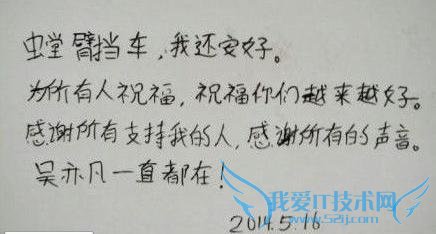 螳臂挡车，我还安好。
为所有人祝福，祝福你们越来越好。
感谢所有支持我的人，感谢所有的声音。
吴亦凡一直都在！
2014.5.16
我爱IT技术网
www.52ij.com